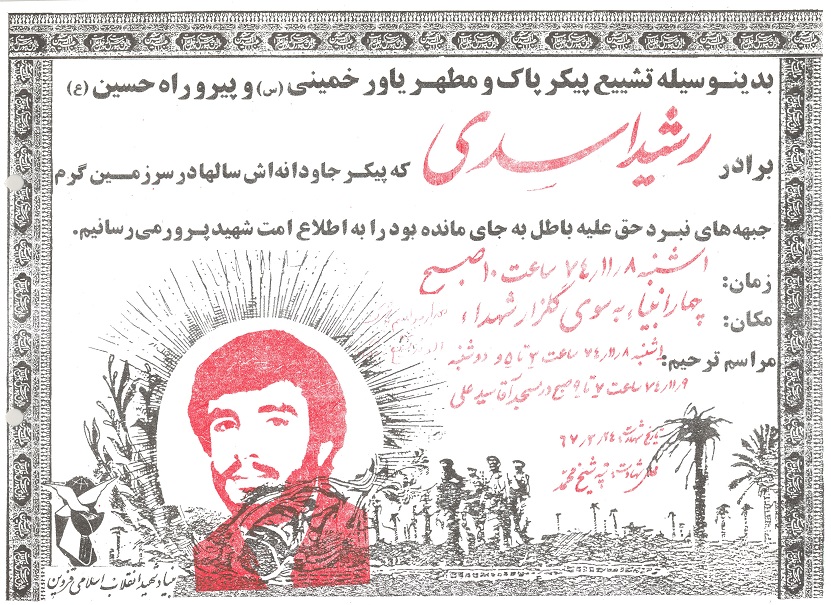 بدینوسیله تشییع پیکر پاک و مطهر یاور خمینی (س) و پیرو راه حسین (ع)
برادر رشید اسدی که پیکر جاودانه‌اش سالها در سرزمین گرم
جبهه‌های نبرد حق علیه باطل به جای مانده بود را به اطلاع امت شهید پرور می‌رسانیم.
زمان: ۱شنبه ۷۴٫۱۱٫۸ ساعت ۱۰ صبح
مکان: چهار انبیاء به سوی گلزار شهداء
مراسم ترحیم: ۱شنبه ۷۴٫۱۱٫۸ ساعت ۲ تا ۵ و دوشنبه
۷۴٫۱۱٫۹ ساعت ۷ تا ۹ صبح در مسجد آقا سید علی
تاریخ شهادت: ۶۷٫۲٫۲۴
محل شهادت: تپه شیخ محمد
بنیاد شهید انقلاب اسلامی قزوین